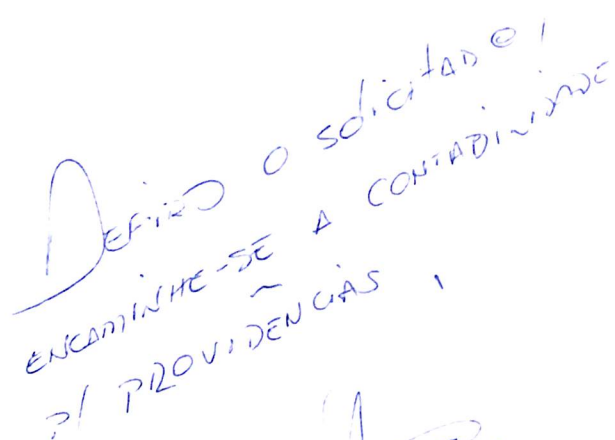 DEFIRO O SOLICITADO,
ENCAMINHE-SE A CONTABILIDADE
P/ PROVIDÊNCIAS,